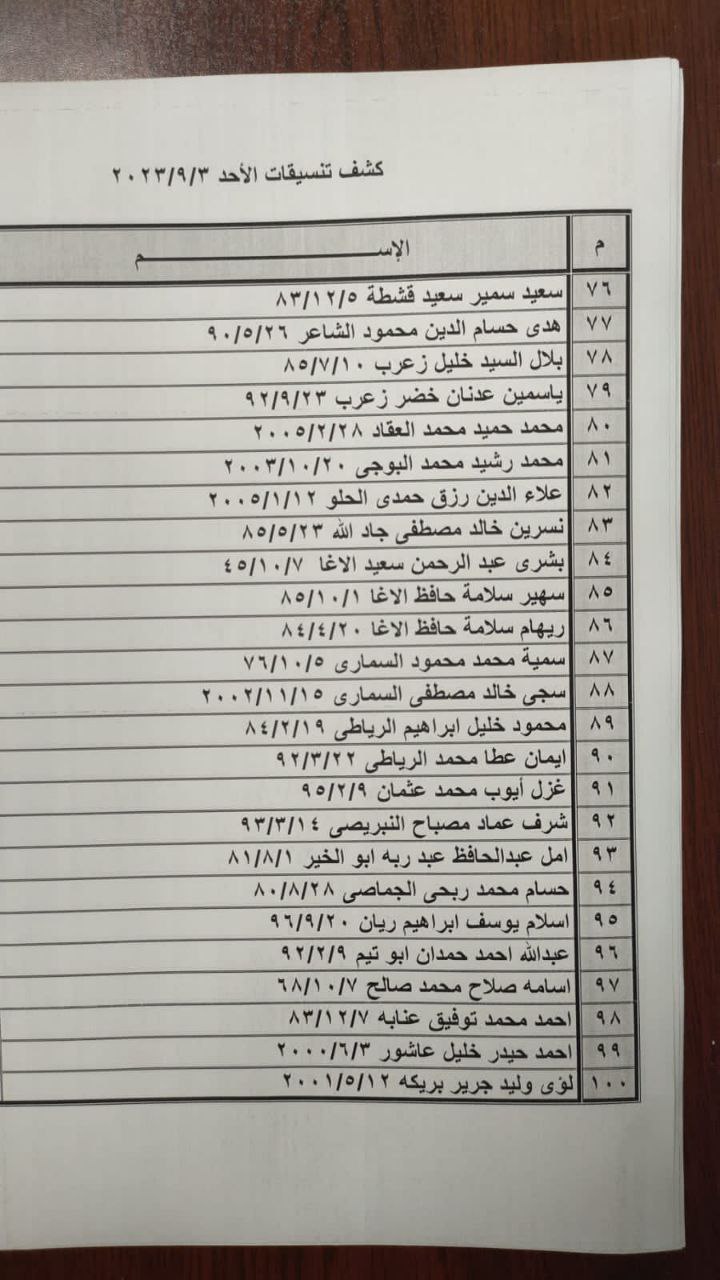 كشف تنسيقات الأحد ٢٠٢٣/٩/٣
م الإســـــــــــــــــــــم
٧٦ سعيد سمير سعيد قشطة ٨٣/١٢/٥
٧٧ هدى حسام الدين محمود الشاعر ٩٠/٥/٢٦
٧٨ بلال السيد خليل زعرب ٨٥/٧/١٠
٧٩ ياسمين عدنان خضر زعرب ٩٢/٩/٢٣
٨٠ محمد حميد محمد العقاد ٢٠٠٥/٢/٢٨
٨١ محمد رشيد محمد البوجى ٢٠٠٣/١٠/٢٠
٨٢ علاء الدين رزق حمدى الحلو ٢٠٠٥/١/١٢
٨٣ نسرين خالد مصطفى جاد الله ٨٥/٥/٢٣
٨٤ بشرى عبد الرحمن سعيد الاغا ٤٥/١٠/٧
٨٥ سهير سلامة حافظ الاغا ٨٥/١٠/١
٨٦ ريهام سلامة حافظ الاغا ٨٤/٤/٢٠
٨٧ سمية محمد محمود السمارى ٧٦/١٠/٥
٨٨ سجى خالد مصطفى السمارى ٢٠٠٢/١١/١٥
٨٩ محمود خليل ابراهيم الرياطى ٨٤/٢/١٩
٩٠ ايمان عطا محمد الرياطى ٩٢/٣/٢٢
٩١ غزل أيوب محمد عثمان ٩٥/٢/٩
٩٢ شرف عماد مصباح النبريصى ٩٣/٣/١٤
٩٣ امل عبدالحافظ عبد ربه ابو الخير ٨١/٨/١
٩٤ حسام محمد ربحى الجماصى ٨٠/٨/٢٨
٩٥ اسلام يوسف ابراهيم ريان ٩٦/٩/٢٠
٩٦ عبدالله احمد حمدان ابو تيم ٩٢/٢/٩
٩٧ اسامه صلاح محمد صالح ٦٨/١٠/٧
٩٨ احمد محمد توفيق عنابه ٨٣/١٢/٧
٩٩ احمد حيدر خليل عاشور ٢٠٠٠/٦/٣
١٠٠ لؤى وليد جرير بريكه ٢٠٠١/٥/١٢